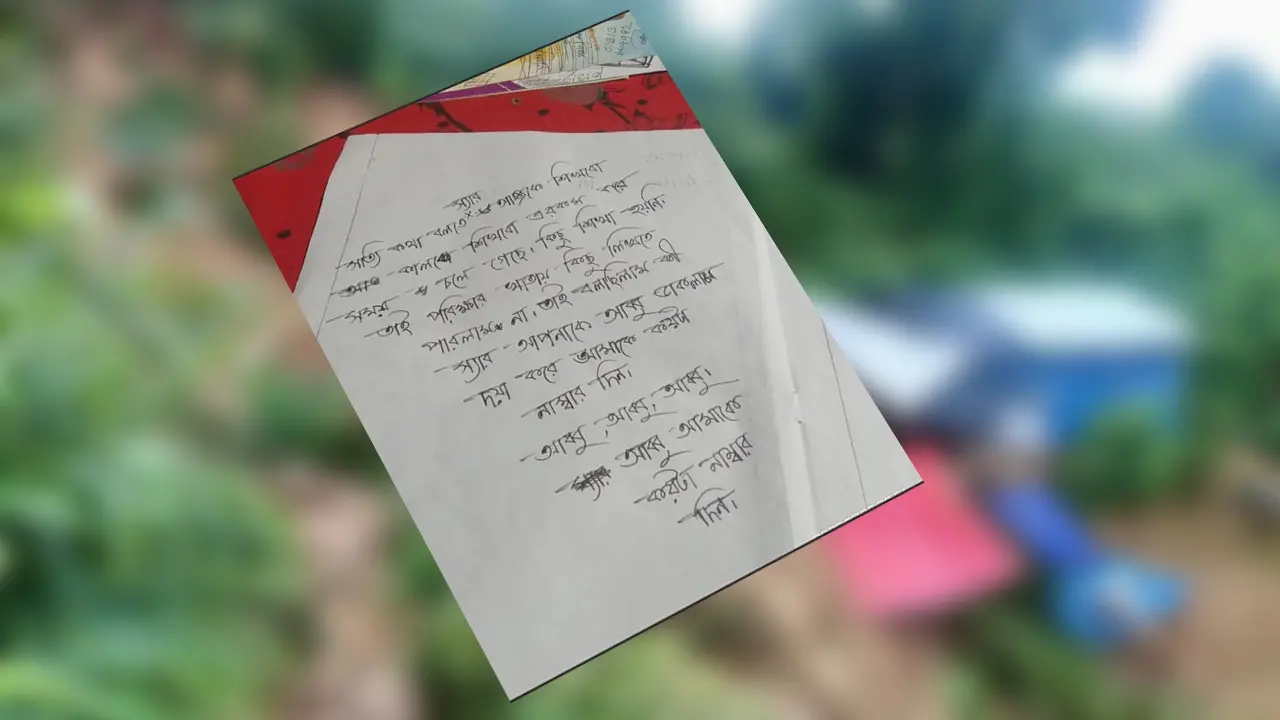 স্যার
সত্যি কথা বলতে আজকে শিখবো
আর কালকে শিখবো এরকম করে
সময় চলে গেছে। কিছু শিখা হয়নি।
তাই পরিক্ষার খাতায় কিছু লিখতে
পারলাম না। তাই বলছিলাম কী
স্যার আপনাকে আব্বু ডাকলাম
দয়া করে আমাকে কয়টা
নাম্বার দিন।
আব্বু, আব্বু, আব্বু।
আব্বু আমাকে
কয়টা নাম্বার
দিন।